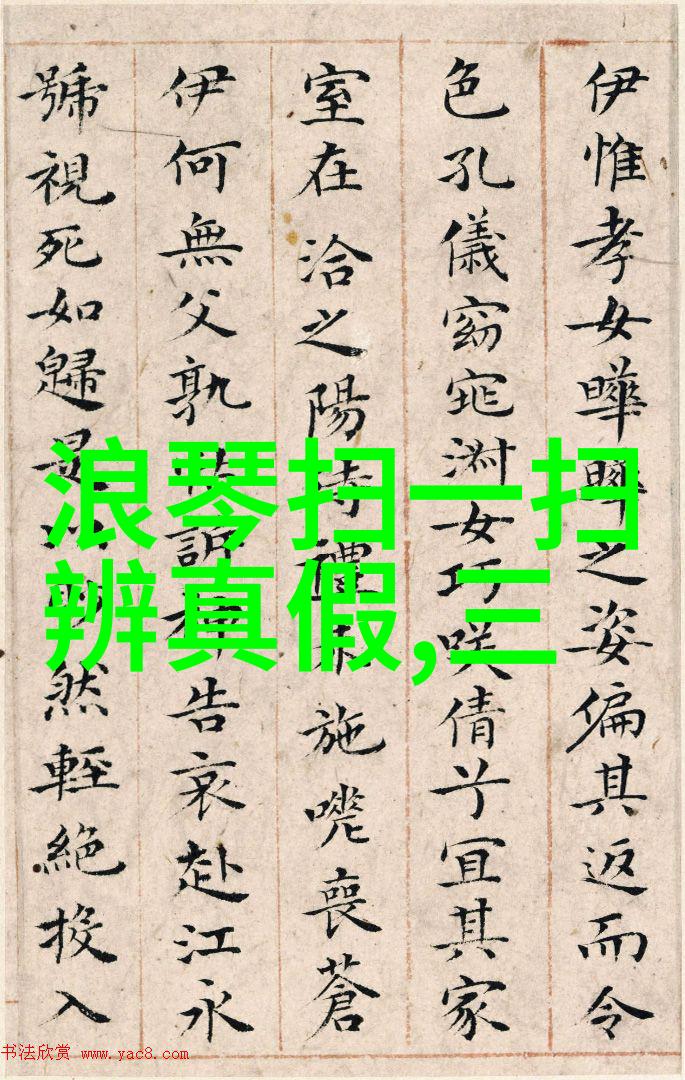 伊惟孝女曄曄之姿偏其返而令
色孔儀窈窕淑女巧咲倩兮宜其家
室在洽之陽待禮未施嗟喪蒼
伊何無父孰訴告哀赴江永
號視死如歸是然輕絕投入
浪琴扫一扫
辨真假,三
书法欣赏 www.yac8.com